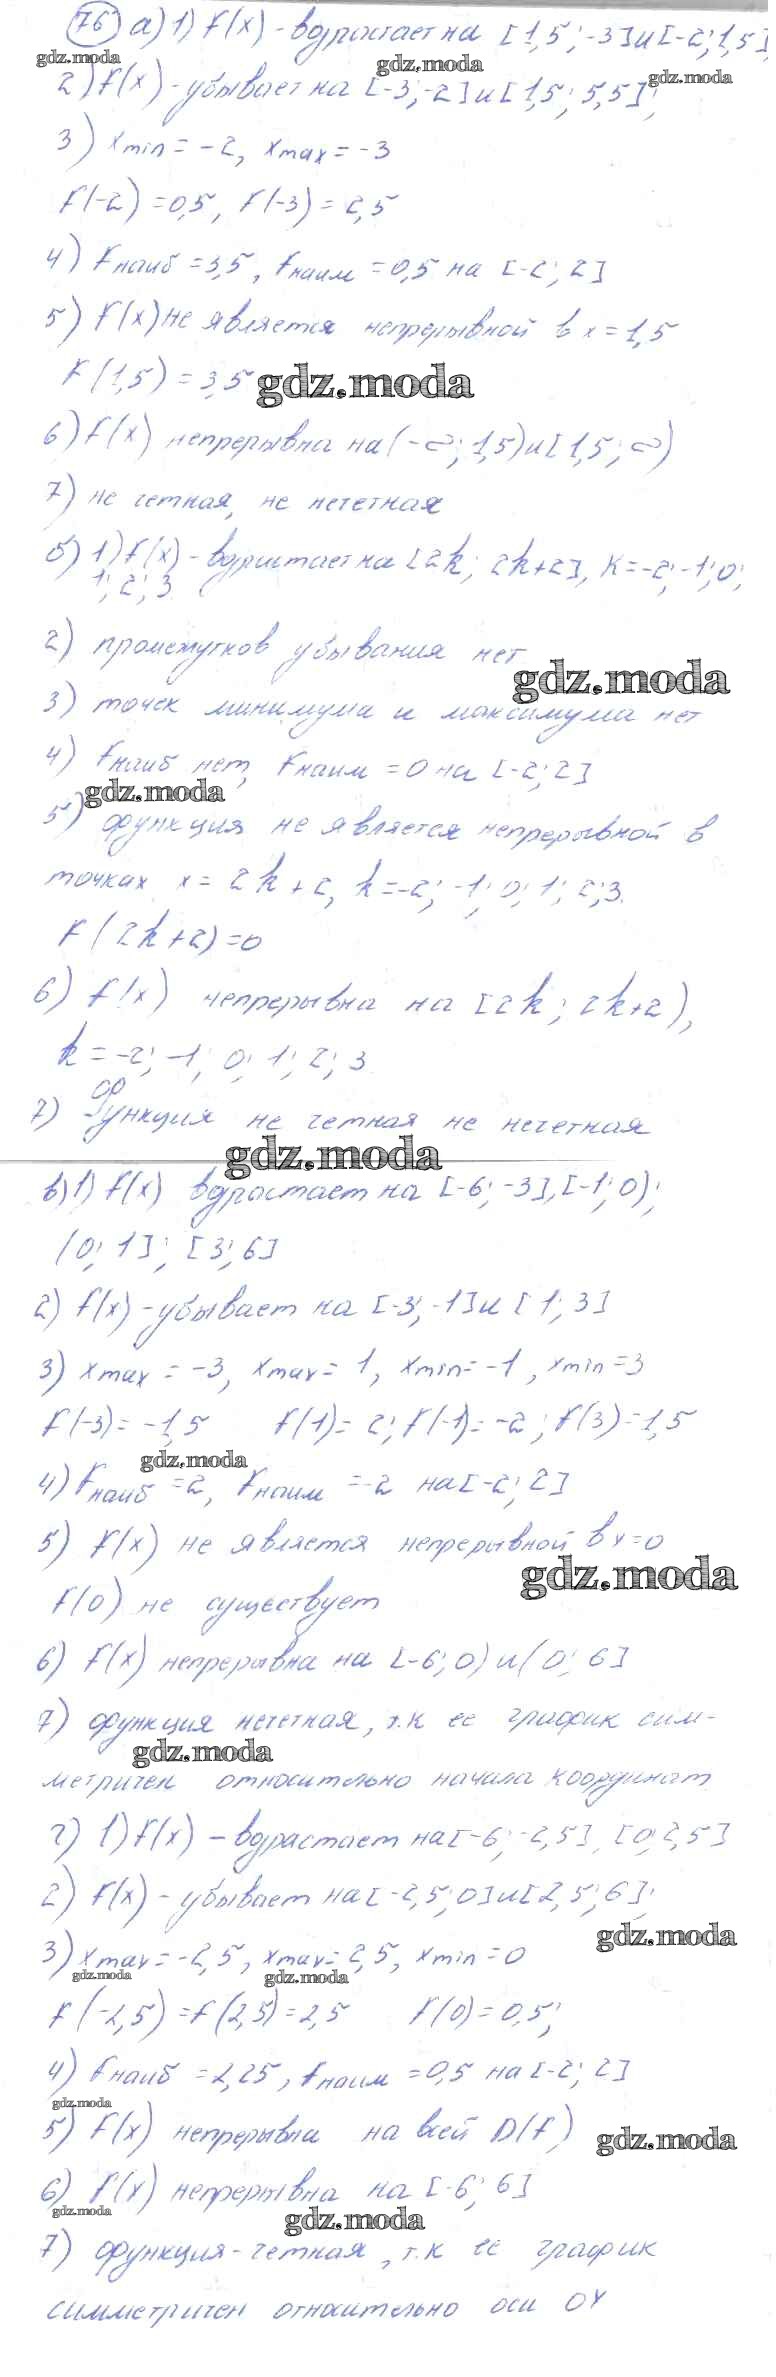 76 а) 1) f(x) - возрастает на [1,5; -3] и [-2; 1,5],
gdz.moda gdz.moda gdz.moda
2) f(x) - убывает на [-3; -2] и [1,5; 5,5];
3) xmin = -2, xmax = -3
f(-2) = 0,5, f(-3) = 2,5
4) fнаиб = 3,5, fнаим = 0,5 на [-2; 2]
5) f(x) не является непрерывной в x = 1,5
f(1,5) = 3,5 gdz.moda
6) f(x) непрерывна на (-∞; 1,5) и [1,5; ∞)
7) не четная, не нечетная
б) 1) f(x) - возрастает на [2k; 2k+2], k = -2; -1; 0;
1; 2; 3
2) промежутков убывания нет
gdz.moda
3) точек минимума и максимума нет
4) fнаиб нет, fнаим = 0 на [-2; 2]
gdz.moda
5) функция не является непрерывной в
точках x = 2k + 2, k = -2; -1; 0; 1; 2; 3.
f(2k+2) = 0
6) f(x) непрерывна на [2k; 2k+2),
k = -2; -1; 0; 1; 2; 3
7) функция не четная не нечетная
gdz.moda
в) 1) f(x) возрастает на [-6; -3], [-1; 0);
(0; 1]; [3; 6]
2) f(x) - убывает на [-3; -1] и [1; 3]
3) xmax = -3, xmax = 1, xmin = -1, xmin = 3
f(-3) = -1,5 f(1) = 2; f(-1) = -2; f(3) = 1,5
gdz.moda
4) fнаиб = 2, fнаим = -2 на [-2; 2]
5) f(x) не является непрерывной в x = 0
gdz.moda
f(0) не существует
6) f(x) непрерывна на [-6; 0) и (0; 6]
7) функция нечетная, т.к ее график сим-
gdz.moda
метричен относительно начала координат
г) 1) f(x) - возрастает на [-6; -2,5], [0; 2,5]
2) f(x) - убывает на [-2,5; 0] и [2,5; 6];
gdz.moda
3) xmax = -2,5, xmax = 2,5, xmin = 0
gdz.moda gdz.moda
f(-2,5) = f(2,5) = 2,5 f(0) = 0,5;
4) fнаиб = 2,25, fнаим = 0,5 на [-2; 2]
gdz.moda
5) f(x) непрерывна на всей D(f)
gdz.moda
6) f(x) непрерывна на [-6; 6]
gdz.moda gdz.moda
7) функция - четная, т.к ее график
симметричен относительно оси OY